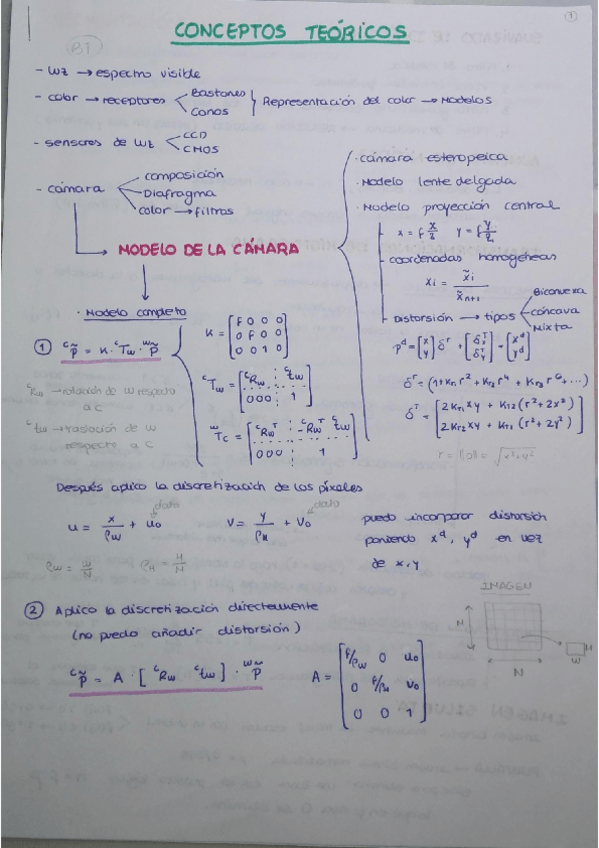 1
CONCEPTOS TEÓRICOS
B1
- Wz → espectro visible
- color → receptores < Bastones / Conos } Representación del color → Modelos
- sensores de Wz < CCD / CMOS
- cámara < composición / Diafragma / color → filtros
MODELO DE LA CÁMARA
· cámara esteropeica
· Modelo lente delgada
· Modelo proyección central
x = f X/Z y = f Y/Z
- coordenadas homogéneas
xi = x̃i / x̃n+1
- Distorsión → tipos < Biconvexa / cóncava / Mixta
p^d = [x y] δ^r + [δ^T_x δ^T_y] = [x^d y^d]
δ^r = (1 + Kr1 r² + Kr2 r⁴ + Kr3 r⁶ + ...)
δ^T = [2 Kt1 xy + Kt2 (r² + 2x²)
2 Kt2 xy + Kt1 (r² + 2y²)]
r = ||p|| = √(x² + y²)
· Modelo completo
① ^c p̃ = K · ^cTw · ^w p̃
K = [f 0 0 0
0 f 0 0
0 0 1 0]
^cTw = [^cRw ^ctw
000 1]
^wTc = [^cRw^T -^cRw^T ^ctw
000 1]
^cRw → rotación de w respecto a c
^ctw → traslación de w respecto a c
Después aplico la discretización de los píxeles
u = x/ρw + u0 dato
v = y/ρH + v0 dato
puedo incorporar distorsión
poniendo x^d, y^d en vez
de x, y
ρw = w/N ρH = H/N
② Aplico la discretización directamente
(no puedo añadir distorsión)
^c p̃ = A · [^cRw ^ctw] · ^w p̃
A = [f/ρw 0 u0
0 f/ρH v0
0 0 1]
IMAGEN
N
N
H
W